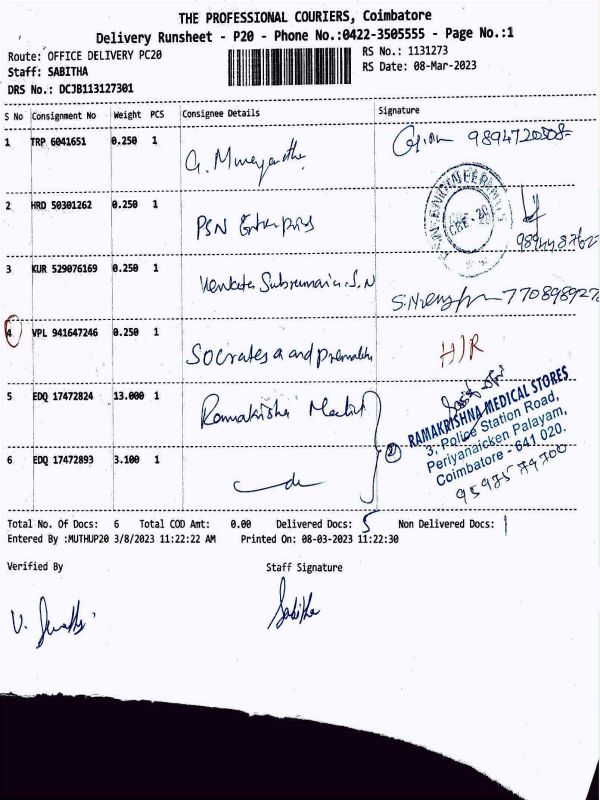 THE PROFESSIONAL COURIERS, Coimbatore
Delivery Runsheet - P20 - Phone No.:0422-3505555 - Page No.:1
Route: OFFICE DELIVERY PC20
RS No.: 1131273
Staff: SABITHA
RS Date: 08-Mar-2023
DRS No.: DCJB113127301
S No Consignment No Weight PCS Consignee Details Signature
1 TRP 6041651 0.250 1 G. 9894720508
2 HRD 50301262 0.250 1 PSN Enterprises
3 KUR 529076169 0.250 1 Venkata Subramania.S.N
4 VPL 941647246 0.250 1 Socrates a and premalatha H/R
5 EDQ 17472824 13.000 1 Ramakrishna
RAMAKRISHNA MEDICAL STORES
3, Police Station Road,
Periyanaicken Palayam,
Coimbatore - 641 020.
6 EDQ 17472893 3.100 1 do
Total No. Of Docs: 6 Total COD Amt: 0.00 Delivered Docs: 5 Non Delivered Docs: 1
Entered By :MUTHUP20 3/8/2023 11:22:22 AM Printed On: 08-03-2023 11:22:30
Verified By Staff Signature
Sabitha